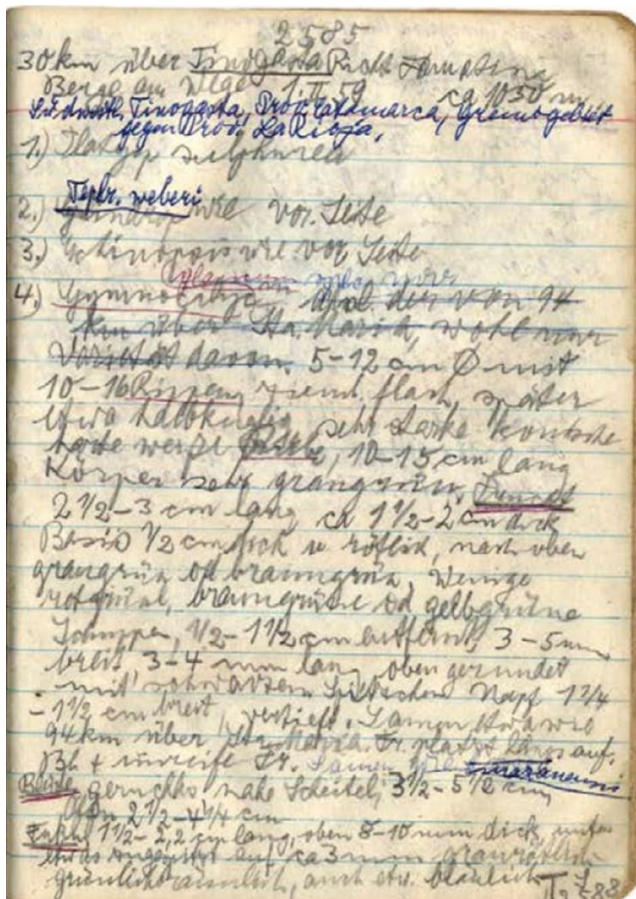 2585
30 km über Tinogasta Richt. Famatina
Berge am Wege 1.II.59 ca 1050 m
Südwestl. Tinogasta, Prov. Catamarca, Grenzgebiet
gegen Prov. La Rioja,
1.)
Tephr. weberi
2.) wie vor. Seite
3.) wie vor. Seite
4.) Gymnocalyc. der von 94
km über Sta. Maria, wohl nur
davon. 5-12 cm Ø mit
10-16 Rippen, ziemlich flach, später
etwa halbkuglig, sehr starke konische
harte weiße, 10-15 cm lang
Körper sehr graugrün. Frucht
2 1/2-3 cm lang, ca 1 1/2-2 cm dick
Basis 1/2 cm dick u. rötlich, nach oben
graugrün od braungrün, Wenige
rotgrüne, braungrüne od gelbgrüne
Schuppen, 1/2-1 1/2 cm entfernt, 3-5 mm
breit 3-4 mm lang, oben gerundet
mit schwarzem Spitzchen Napf 1 1/4
- 1 1/2 cm breit, vertieft. Samen etwa wie
94 km über Sta. Maria. Fr. platzt längs auf.
+ unreife Fr. Samen wie mazanensis
Blüte geruchlos nahe Scheitel, 3 1/2-5 1/2 cm
2 1/2-4 1/4 cm
1 1/2-2,2 cm lang, oben 8-10 mm dick, unten
etwas auf ca 3 mm
auch etw. bläulich